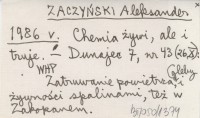 ZACZYŃSKI Aleksander
1986 r. Chemia żywi, ale i
truje. – Dunajec 7, nr 43 (26.X):
WHP Gleby
Zatruwanie powietrza i
żywności spalinami, też w
Zakopanem.